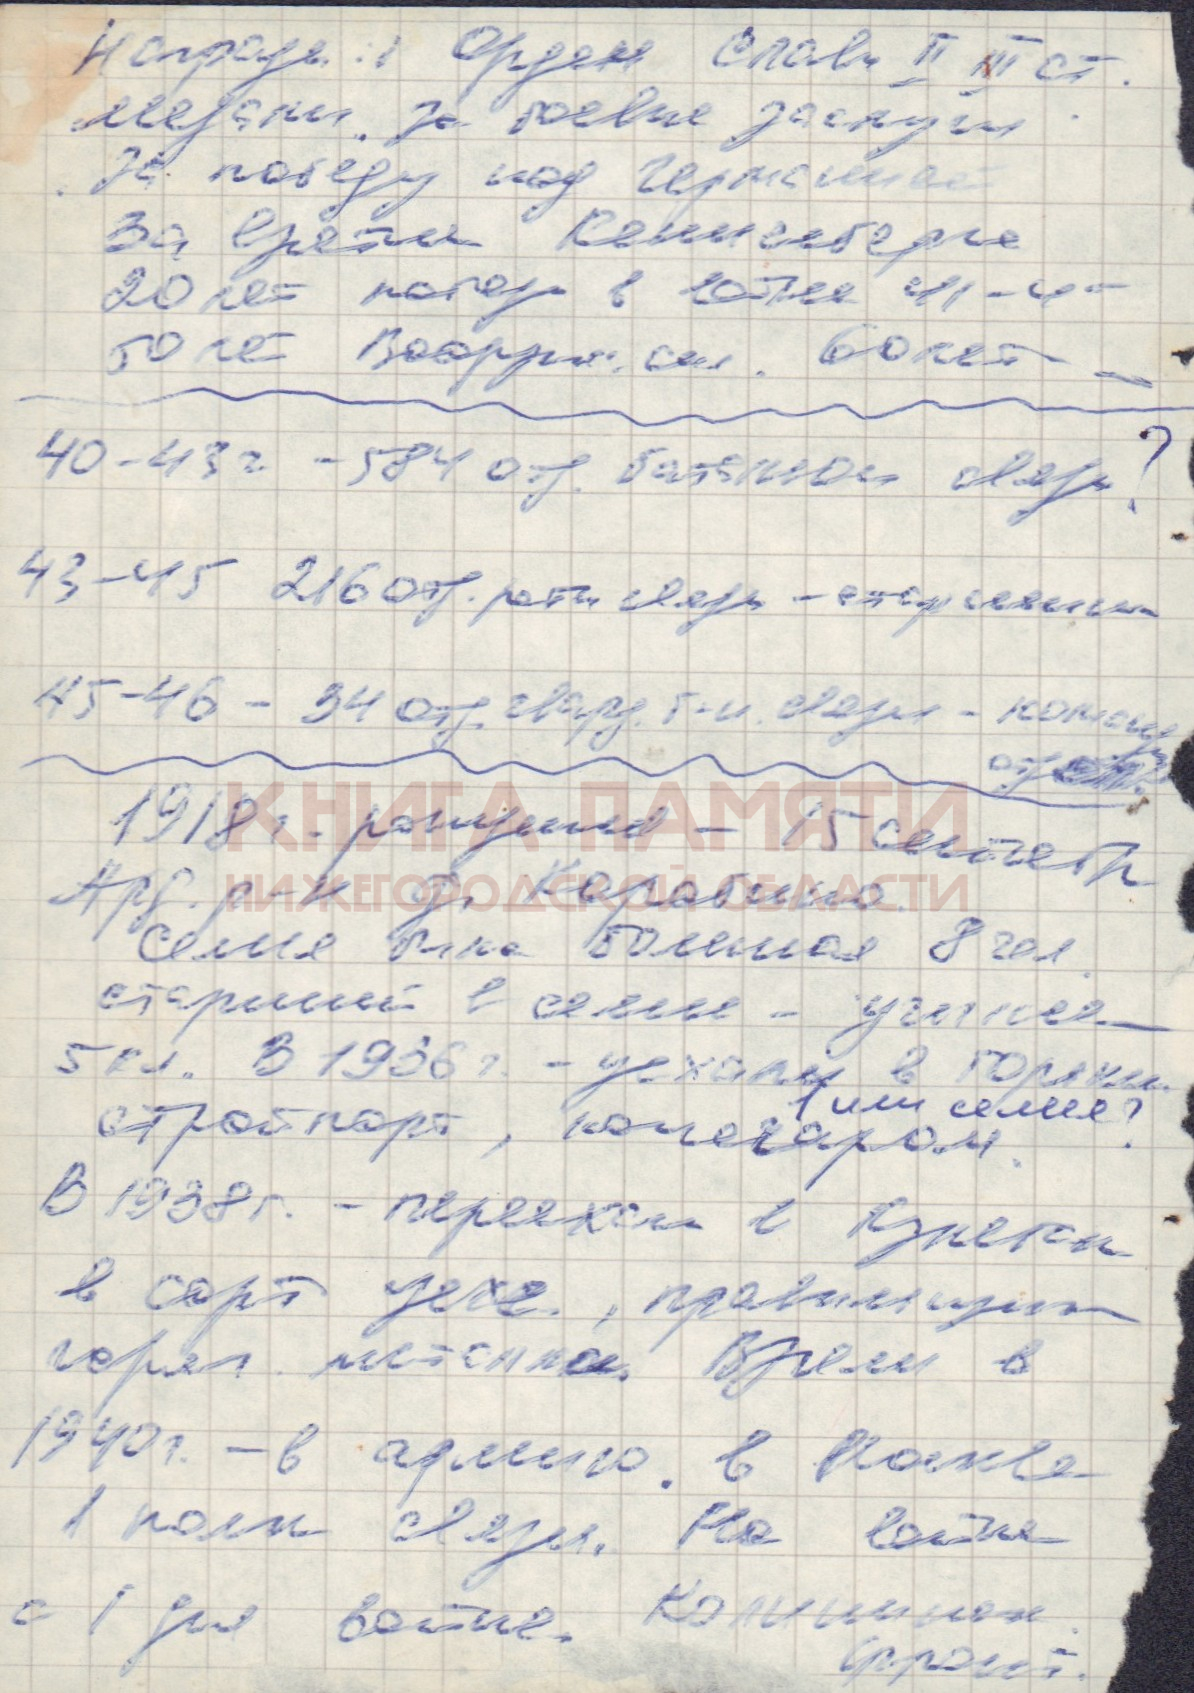 Награды: Орден Славы II III ст.
медали "За боевые заслуги
"За победу над Германией
За взятие Кенигсберга
20 лет победы в войне 41-45
50 лет Вооруж. сил. 60 лет —
40-43 г. - 584 отд. батальон связи ?
43-45 216 отд. рота связи - старшина
45-46 - 34 отд. гвард. б-н. связи - команд.
отд.
КНИГА ПАМЯТИ
НИЖЕГОРОДСКОЙ ОБЛАСТИ
1918 г. родился - 15 сентября
Ард. р-н д.
Семья была большая 8 чел.
старший в семье - учился
5 кл. В 1936 г. - уехали в Горький
1 или семья?
стройпорт, кочегаром.
В 1938 г. - переехал в
в сорт цехе, правильщик
горяч. металла. Взяли в
1940 г. - в армию. в
1 полк связи. На войне
с 1 дня войны. Калининск.
фронт.